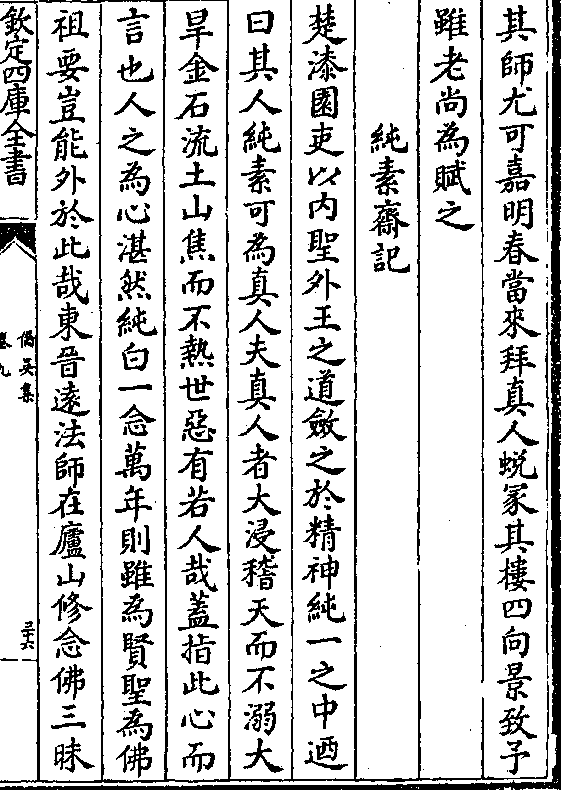 其師尤可嘉明春當來拜真人蛻冢其樓四向景致予
雖老尚為賦之
純素齋記
楚漆園吏以内聖外王之道斂之於精神純一之中迺
曰其人純素可為真人夫真人者大浸稽天而不溺大
旱金石流土山焦而不熱世惡有若人哉蓋指此心而
言也人之為心湛然純白一念萬年則雖為賢聖為佛
祖要豈能外於此哉東晉逺法師在廬山修念佛三昧
欽定四庫全書
僑吳集
卷九
三十六